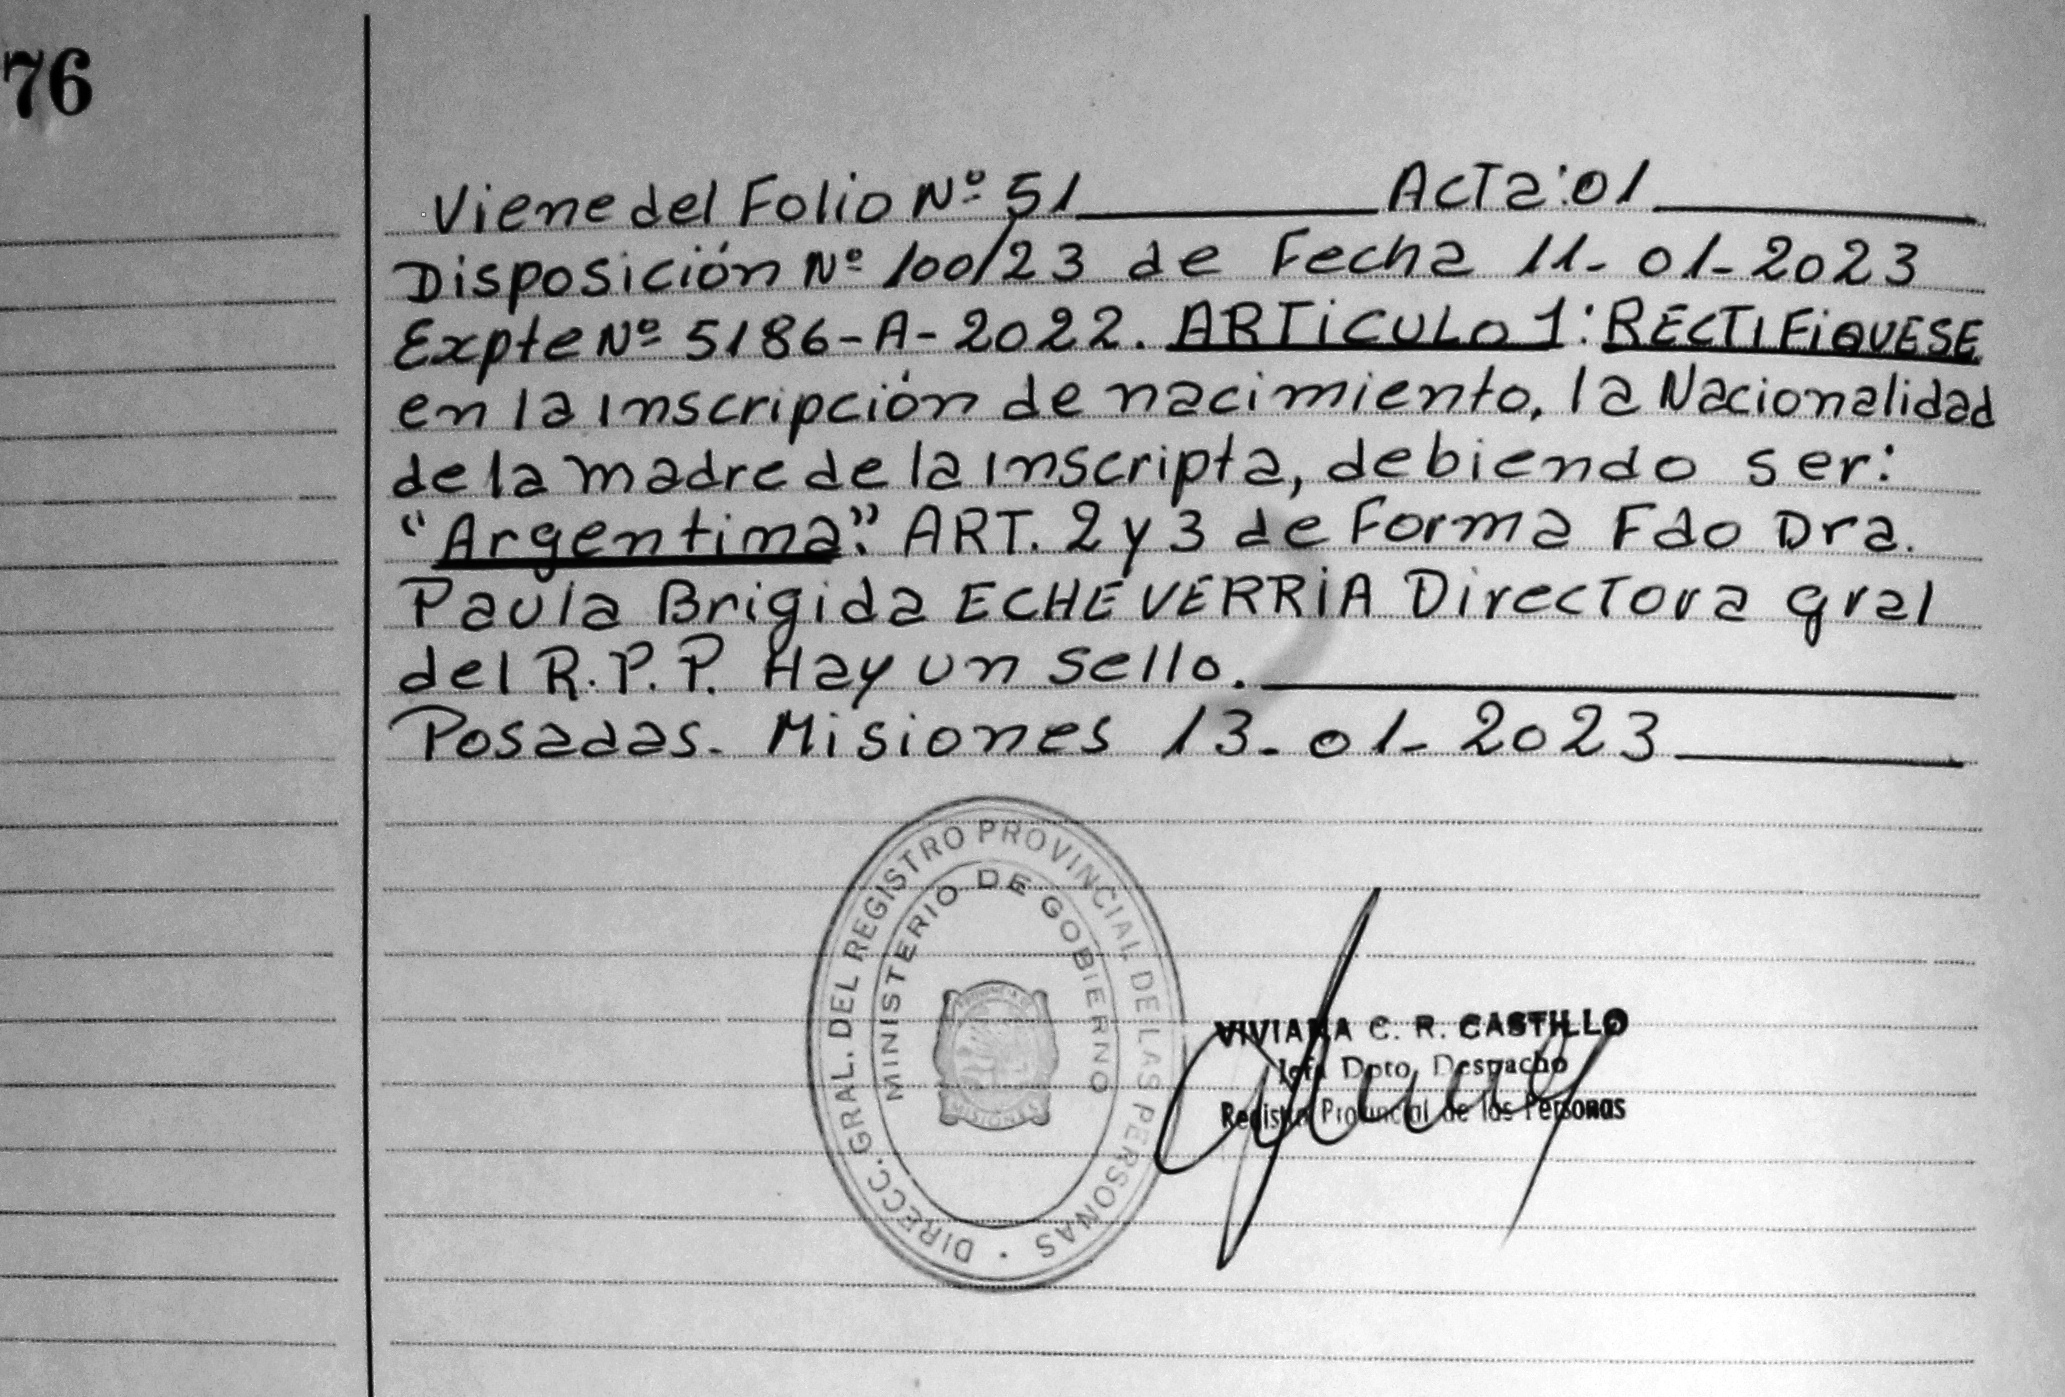 76
Viene del Folio Nº 51 Acta: 01
Disposición Nº 100/23 de Fecha 11-01-2023
Expte Nº 5186-A-2022. ARTICULO 1: RECTIFIQUESE
en la inscripción de nacimiento, la Nacionalidad
de la madre de la inscripta, debiendo ser:
"Argentina". ART. 2 y 3 de Forma Fdo Dra.
Paula Brigida ECHEVERRIA Directora gral
del R.P.P. Hay un sello.
Posadas. Misiones 13-01-2023
DIRECC. GRAL. DEL REGISTRO PROVINCIAL DE LAS PERSONAS
MINISTERIO DE GOBIERNO
PROVINCIA DE
MISIONES
VIVIANA C. R. CASTILLO
Jefa Dpto. Despacho
Registro Provincial de las Personas